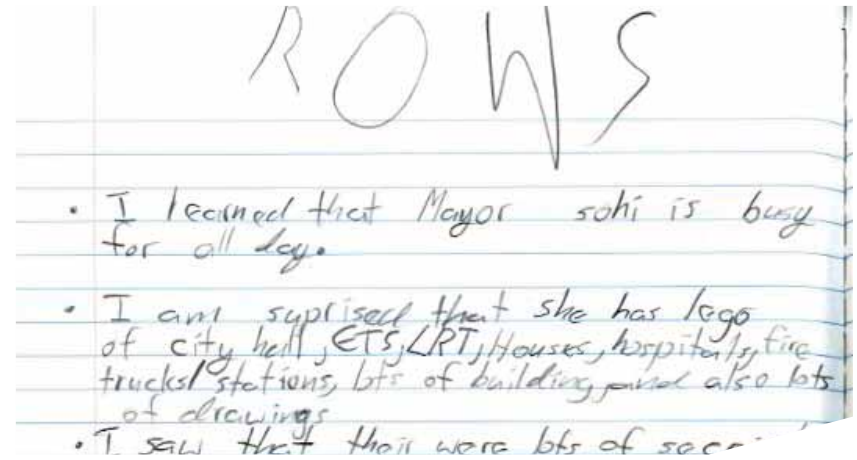 ROWS
• I learned that Mayor sohi is busy
for all day.
• I am suprised that she has lego
of city hall, ETS, LRT, Houses, hospitals, fire
trucks/stations, lots of building, and also lots
of drawings
• I saw that their were lots of